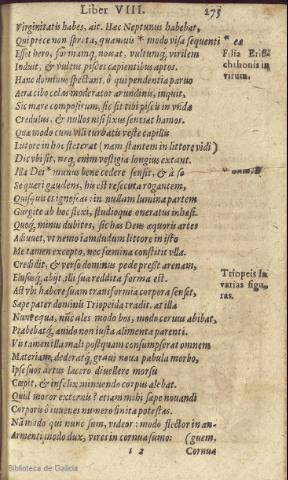 Liber VIII. 275
Virginitatis habes, ait. Hac Neptunus habebat,
Qui prece non spreta, quamuis * modo visa sequenti
Esset hero, formamq; nouat, vultumq; virilem
Induit, & cultus pisces capientibus aptos.
Hanc dominus spectans, ô qui pendentia paruo
Aera cibo celas moderator arundinis, inquit,
Sic mare compositum, sic sit tibi piscis in vnda
Credulus, & nullos nisi fixus sentiat hamos.
Qua modo cum vili turbatis veste capillis
Littore in hoc steterat (nam stantem in littore vidi)
Dic vbi sit, neq; enim vestigia longius extant.
Illa Dei * munus bene cedere sensit, & à se
Se quæri gaudens, his est resecuta rogantem,
Quisquis es ignoscas: in nullam lumina partem
Gurgite ab hoc flexi, studioque operatus inhæsi.
Quoq; minus dubites, sic has Deus æquoris artes
Adiuuet, vt nemo iamdudum littore in isto
Me tamen excepto, nec fœmina constitit vlla.
Credidit, & verso dominus pede pressit arenam,
Elususq; abijt. illi sua reddita forma est.
Ast vbi habere suam transformia corpora sensit,
Sæpe pater dominis Triopeida tradit. at illa
Nunc equa, nũc ales modo bos, modo ceruus abibat,
Præbebatq; auido non iusta alimenta parenti.
Vis tamen illa mali postquam consumpserat omnem
Materiam, dederatq; graui noua pabula morbo,
Ipse suos artus lacero diuellere morsu
Cœpit, & infelix minuendo corpus alebat.
Quid moror externis? etiam mihi sæpe nouandi
Corporis ô iuuenes numero finita potestas.
Nã modo qui nunc sum, videor: modo flector in an-
Armenti modo dux, vires in cornua sumo: (guem,
1 2 Cornua
* ea
Filia Erisi-
chthonis in
virum.
Triopeis in
varias figu-
ras.
Biblioteca de Galicia